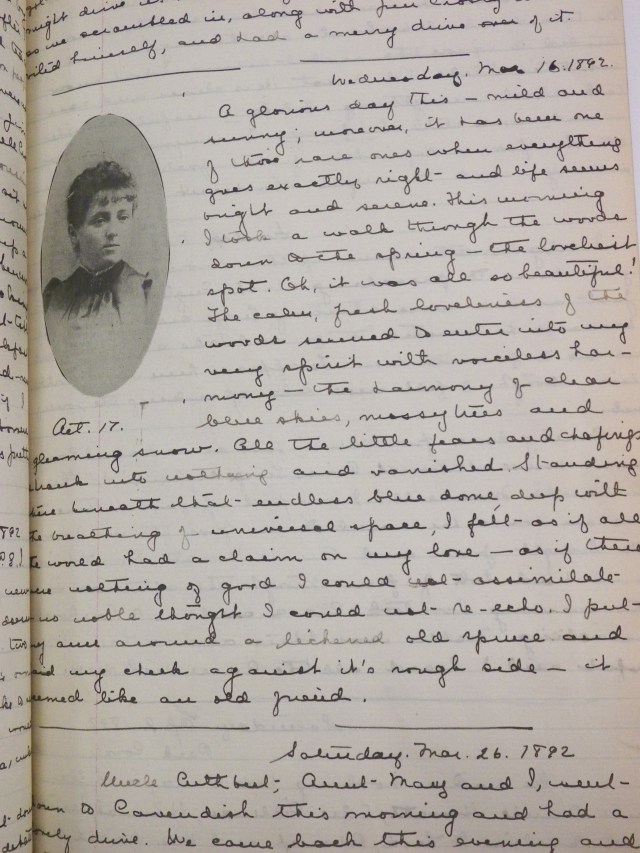 night drive
as we scrambled in, along with
himself, and had a merry drive over of it.
Wednesday. Mar 16. 1892.
A glorious day this – mild and
sunny; moreover, it has been one
of those rare ones when everything
goes exactly right – and life seems
bright and serene. This morning
I took a walk through the woods
down to the spring – the loveliest
spot. Oh, it was all so beautiful!
The calm, fresh loveliness of the
woods seemed to enter into my
very spirit with voiceless har-
mony – the harmony of clear
Aet. 17.
blue skies, mossy trees and
gleaming snow. All the little fears and chafings
shrank into nothing and vanished. Standing
there beneath that endless blue dome, deep with
the breathing of universal space, I felt as if all
the world had a claim on my love – as if there
were nothing of good I could not assimilate
no noble thought I could not re-echo. I put
my arm around a lichened old spruce and
laid my cheek against it's rough side – it
seemed like an old friend.
Saturday. Mar. 26. 1892
Uncle Cuthbert, Aunt Mary and I, went
down to Cavendish this morning and had a
drive. We came back this evening and